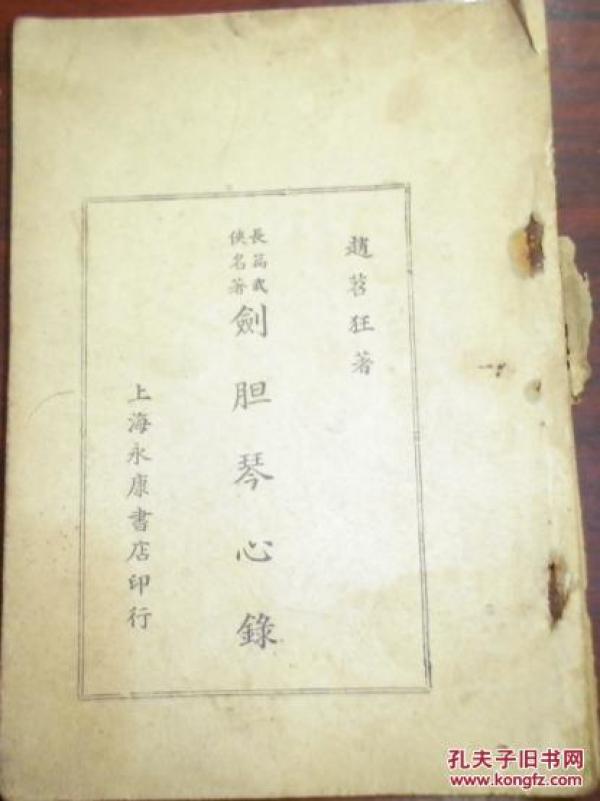 趙苕狂著
長篇武
俠名著
劍胆琴心錄
上海永康書店印行
孔夫子旧书网
www.kongfz.com